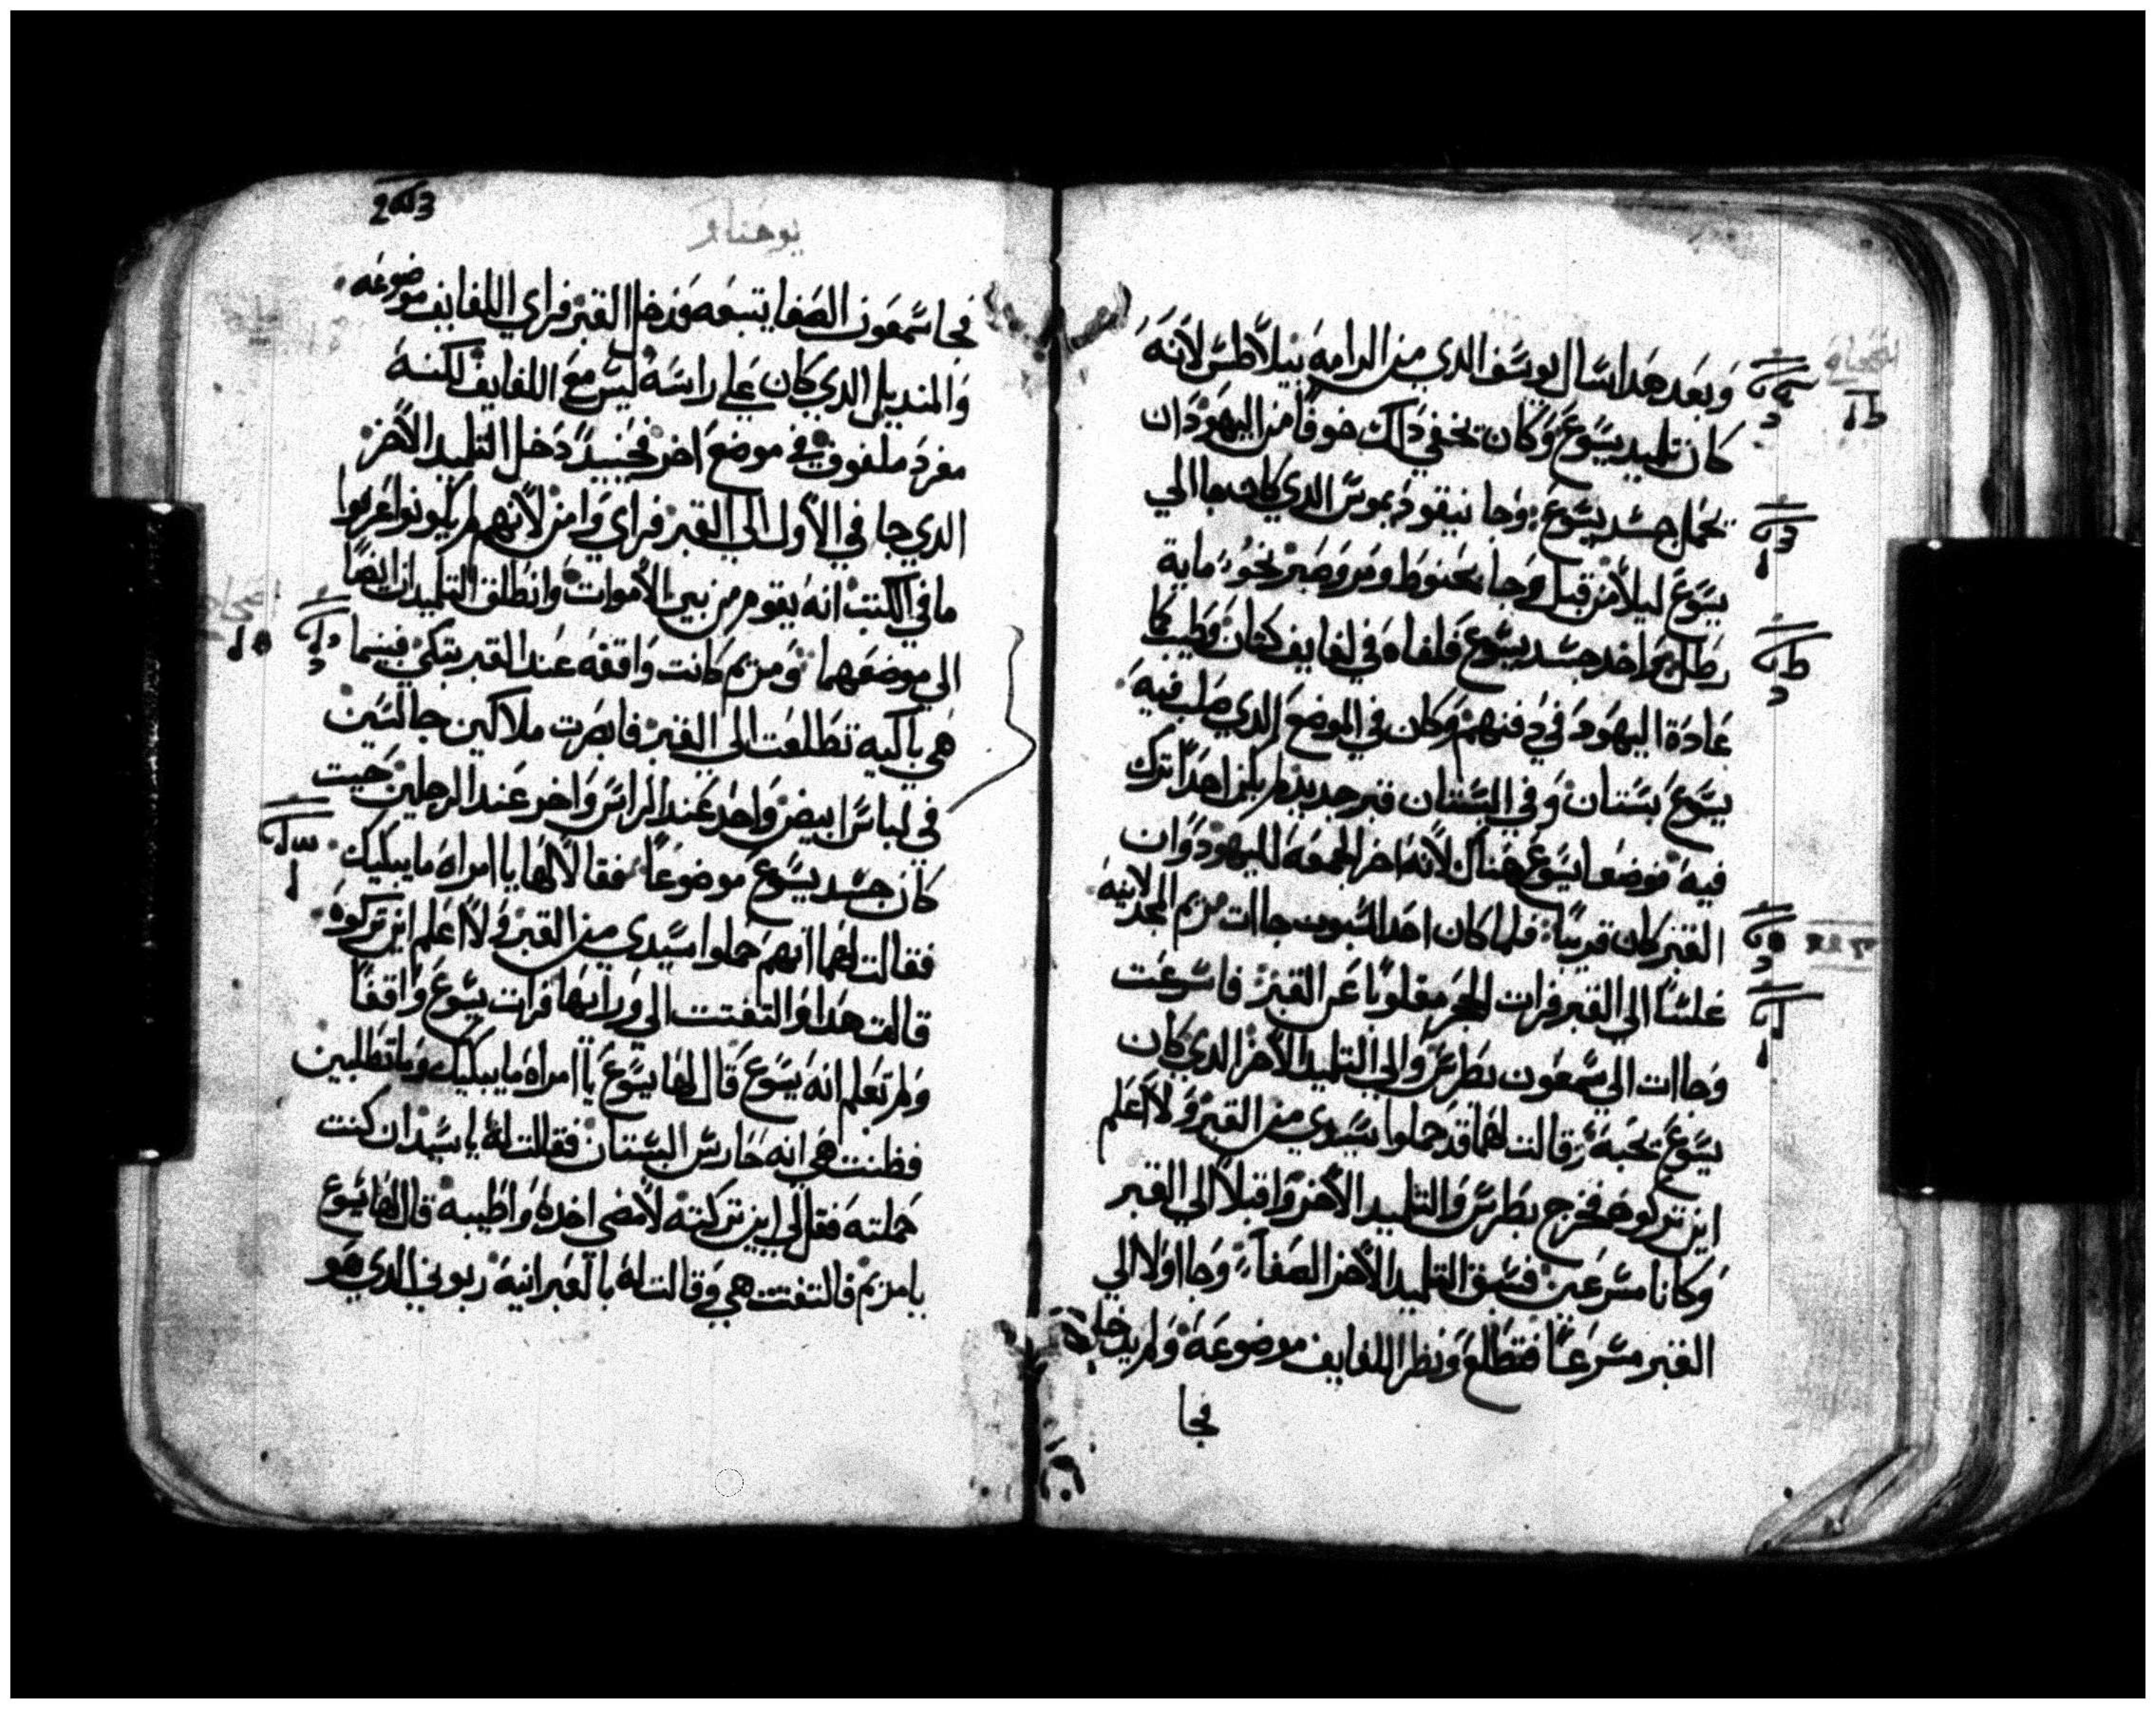 وبعد هدا سال يوسف الدي من الرامه بيلاطس لانه
كان تلميد يسوع وكان يخفي داك خوفا من اليهود ان
يحمل جسد يسوع وجا نيقوديموس الدي كان جا الي
يسوع ليلا من قبل وجا بحنوط ومر وصبر نحو ماية
رطل واخد جسد يسوع فلفاه في لفايف كتان وطيب كما
عادة اليهود في دفنهم وكان في الموضع الدي صلب فيه
يسوع بستان وفي البستان قبر جديد لم يكن احدا ترك
فيه فوضعا يسوع هناك لانه اخر الجمعه لليهود وان
القبر كان قريبا فلما كان احد السبوت جاات مريم المجدلانيه
غلسا الي القبر فرات الحجر مقلوبا عن القبر فاسرعت
وجاات الي سمعون بطرس والي التلميد الاخر الدي كان
يسوع يحبه وقالت لهما قد حملوا سيدي من القبر ولا اعلم
اين تركوه فخرج بطرس والتلميد الاخر واقبلا الي القبر
وكانا مسرعين فسبق التلميد الاخر الصفا وجا اولا الي
القبر مسرعا فتطلع ونظر اللفايف موضوعة ولم يدخل
فجا
يوحنا
فجا سمعون الصفا يتبعه فدخل القبر فراي اللفايف موضوعه
والمنديل الدي كان علي راسه ليس مع اللفايف لكنه
مفرد ملفوف في موضع اخر فحينيد دخل التلميد الاخر
الدي جا في الاول الي القبر فراي وامن لانهم لم يكونوا عرفوا
ما في الكتب انه يقوم من بين الاموات وانطلق التلميدان ايضا
الي موضعهما ومريم كانت واقفه عند القبر تبكي فبينما
هي باكيه تطلعت الي القبر فابصرت ملاكين جالسين
في لباس ابيض واحد عند الراس واخر عند الرجلين حيت
كان جسد يسوع موضوعا فقالا لها يا امراه ما يبكيك
فقالت لهما انهم حملوا سيدي من القبر ولا اعلم اين تركوه
قالت هدا والتفتت الي ورايها فرات يسوع واقفا
ولم تعلم انه يسوع قال لها يسوع يا امراه ما يبكيك وما تطلبين
فظنت هي انه حارس البستان فقالت له يا سيد ان كنت
حملته فقل لي اين تركته لامضي اخده واطيبه قال لها يسوع
يا مريم فالتفتت هي وقالت له بالعبرانيه ربوني الدي هو